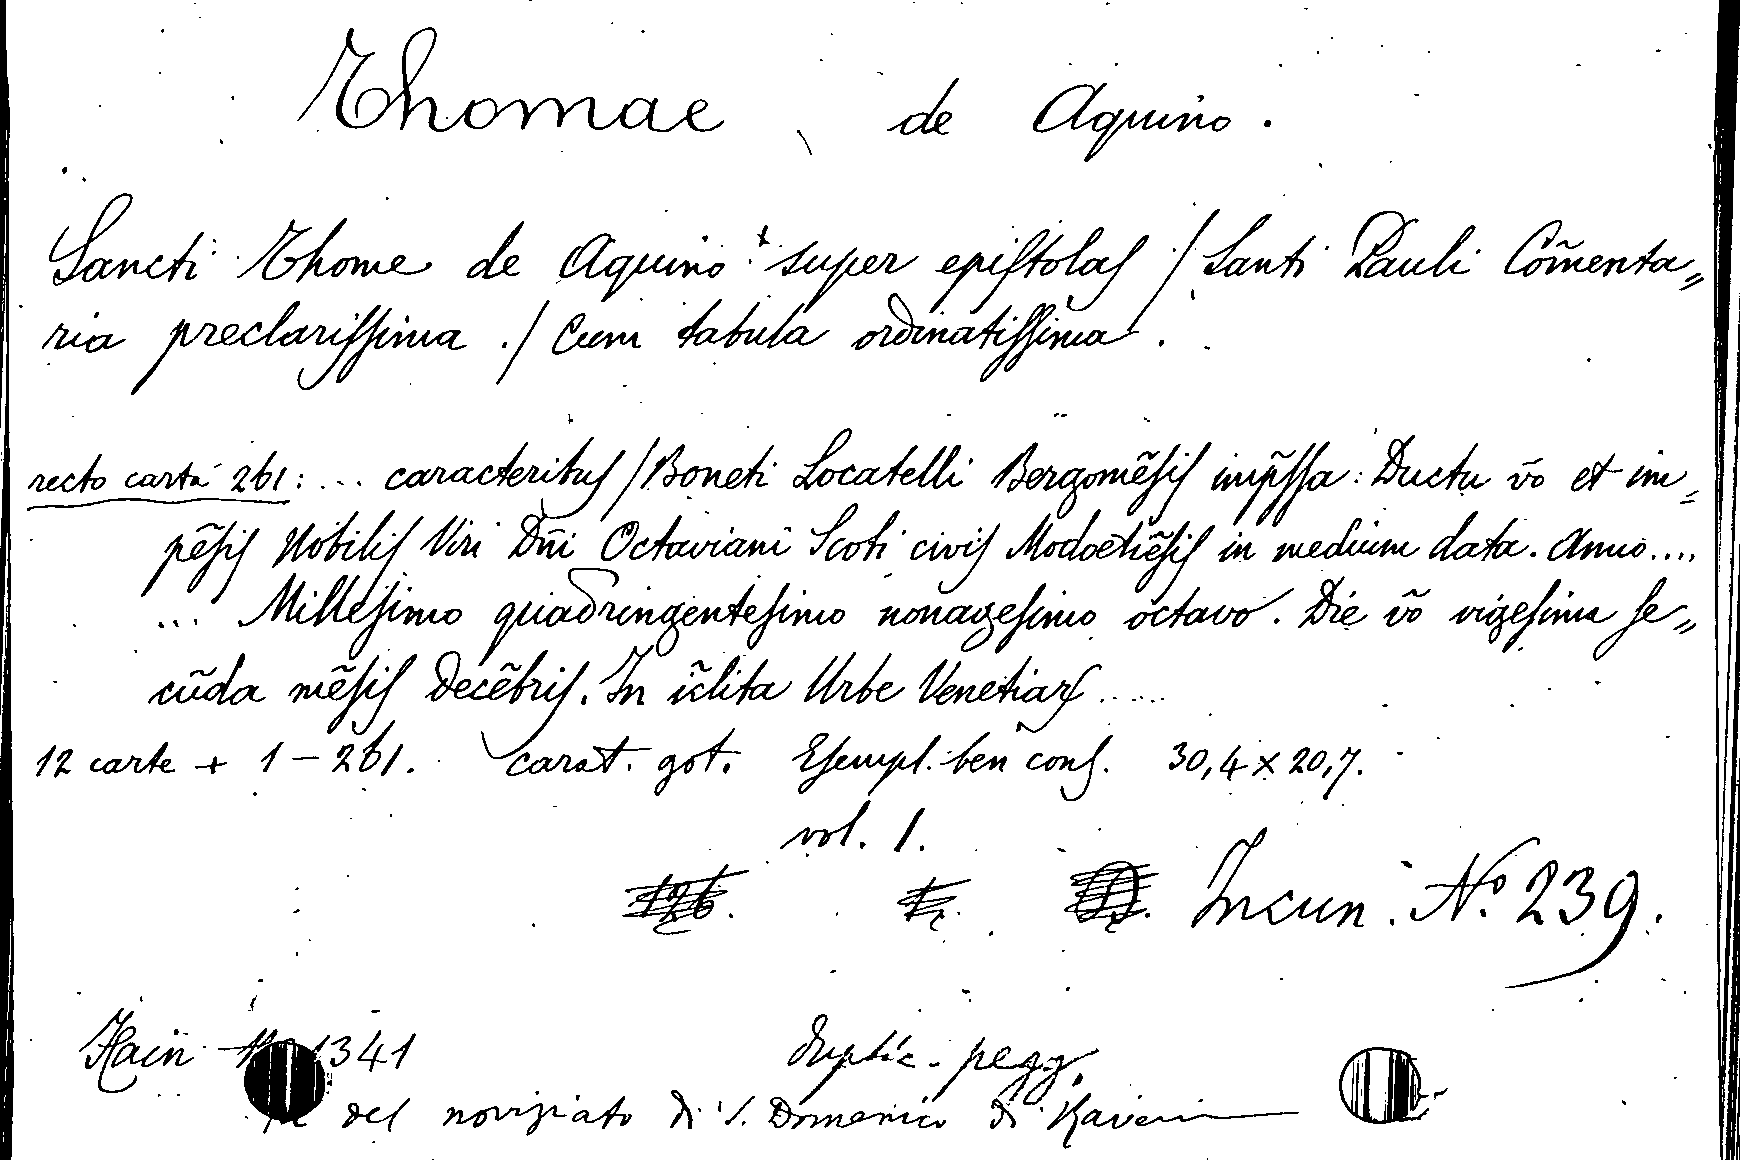 Thomae de Aquino.
Sancti Thome de Aquino super epiſtolaſ / Santi Pauli Com̃enta„
ria preclariſſima ./ Cum tabula ordinatiſſima.
recto carta 261: ... caracteribuſ / Boneti Locatelli Bergomẽſiſ imp̃ſſa: Ductu ṽo et im„
pẽſiſ Nobiliſ Viri Dñi Octaviani Scoti civiſ Modoetiẽſiſ in medium data. Anno....
... Milleſimo quadringenteſimo nonageſimo octavo. Die ṽo vigeſima ſe„
cũda mẽſiſ Decẽbriſ. In ĩclita Urbe Venetiaꝝ ....
12 carte + 1 – 261. carat. got. Eſempl. ben conſ. 30,4 x 20,7.
vol. 1.
126. Incun. N.° 239.
Hain 1341 duplic. pegg.
del noviziato di S. Domenico di